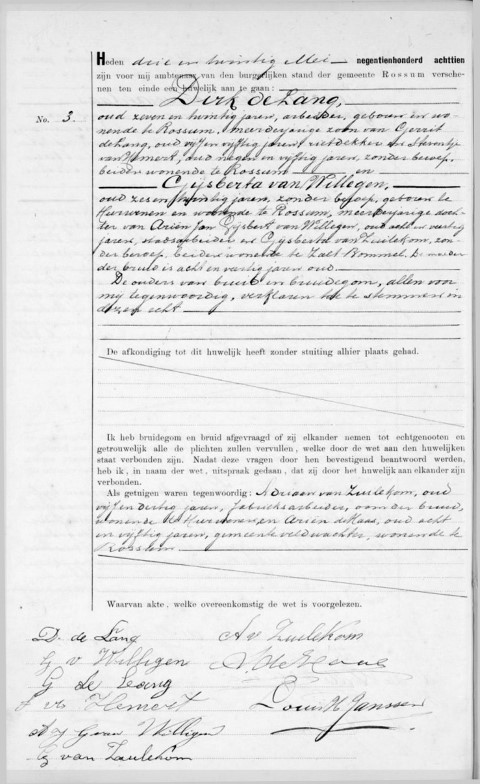 Heden drie en twintig Mei negentienhonderd achttien
zijn voor mij ambtenaar van den burgerlijken stand der gemeente Rossum versche-
nen ten einde een huwelijk aan te gaan:
Dirk de Lang,
No. 3. oud zeven en twintig jaren, arbeider, geboren en wo-
nende te Rossum, meerderjarige zoon van Gerrit
de Lang, oud vijf en vijftig jaren, rietdekker en
van Hemert, oud negen en vijftig jaren, zonder beroep,
beiden wonende te Rossum en
Gijsberta van Willegen,
oud zes en twintig jaren, zonder beroep, geboren te
Hurwenen en wonende te Rossum, meerderjarige doch-
ter van Ariën Jan Gijsbert van Willegen, oud acht en veertig
jaren, en Gijsberta van Zuilekom, zon-
der beroep, beiden wonende te Zalt Bommel. De moeder
der bruid is acht en veertig jaren oud.
De ouders van bruid en bruidegom, allen voor
mij tegenwoordig, verklaren toe te stemmen in
dezen echt
De afkondiging tot dit huwelijk heeft zonder stuiting alhier plaats gehad.
Ik heb bruidegom en bruid afgevraagd of zij elkander nemen tot echtgenooten en
getrouwelijk alle de plichten zullen vervullen, welke door de wet aan den huwelijken
staat verbonden zijn. Nadat deze vragen door hen bevestigend beantwoord werden,
heb ik, in naam der wet, uitspraak gedaan, dat zij door het huwelijk aan elkander zijn
verbonden.
Als getuigen waren tegenwoordig: Adriaan van Zuilekom, oud
vijf en dertig jaren, fabrieksarbeider, oom der bruid,
wonende te Hurwenen, en Ariën de Haas, oud acht
en vijftig jaren, gemeenteveldwachter, wonende te
Rossum
Waarvan akte, welke overeenkomstig de wet is voorgelezen.
D. de Lang
A v Zuilekom
G v Willigen
A. de Haas
G de Lang
v Hemert
Louis H Janssen
A J G van Willigen
G van Zuilekom